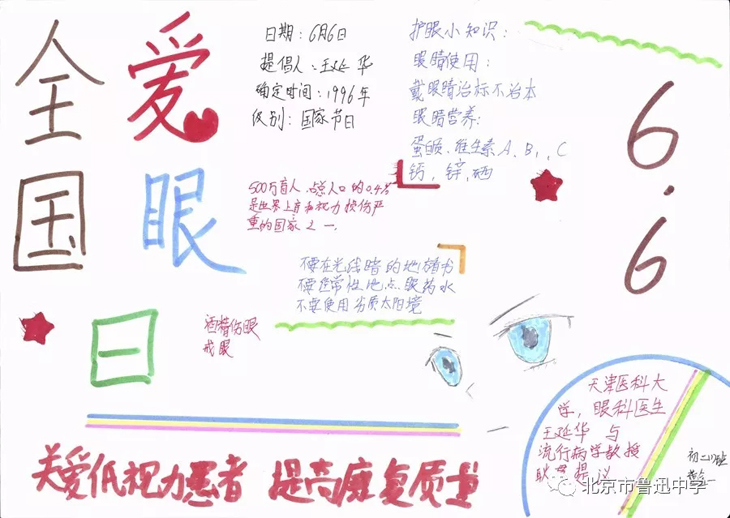 全国
爱眼
日
日期：6月6日
提倡人：王延华
确定时间：1996年
级别：国家节日
护眼小知识：
眼睛使用：
戴眼睛治标不治本
眼睛营养：
蛋白质、维生素A、B₁、C
钙，锌，硒
6.6
500万盲人，占总人口的0.4%
是世界上盲和视力损伤严
重的国家之一.
不要在光线暗的地方看书
不要经常性地点眼药水
不要使用劣质太阳镜
酒精伤眼
戒眼
天津医科大
学，眼科医生
王延华 与
流行病学教授
耿 提议
初二
关爱低视力患者 提高康复质量
北京市鲁迅中学